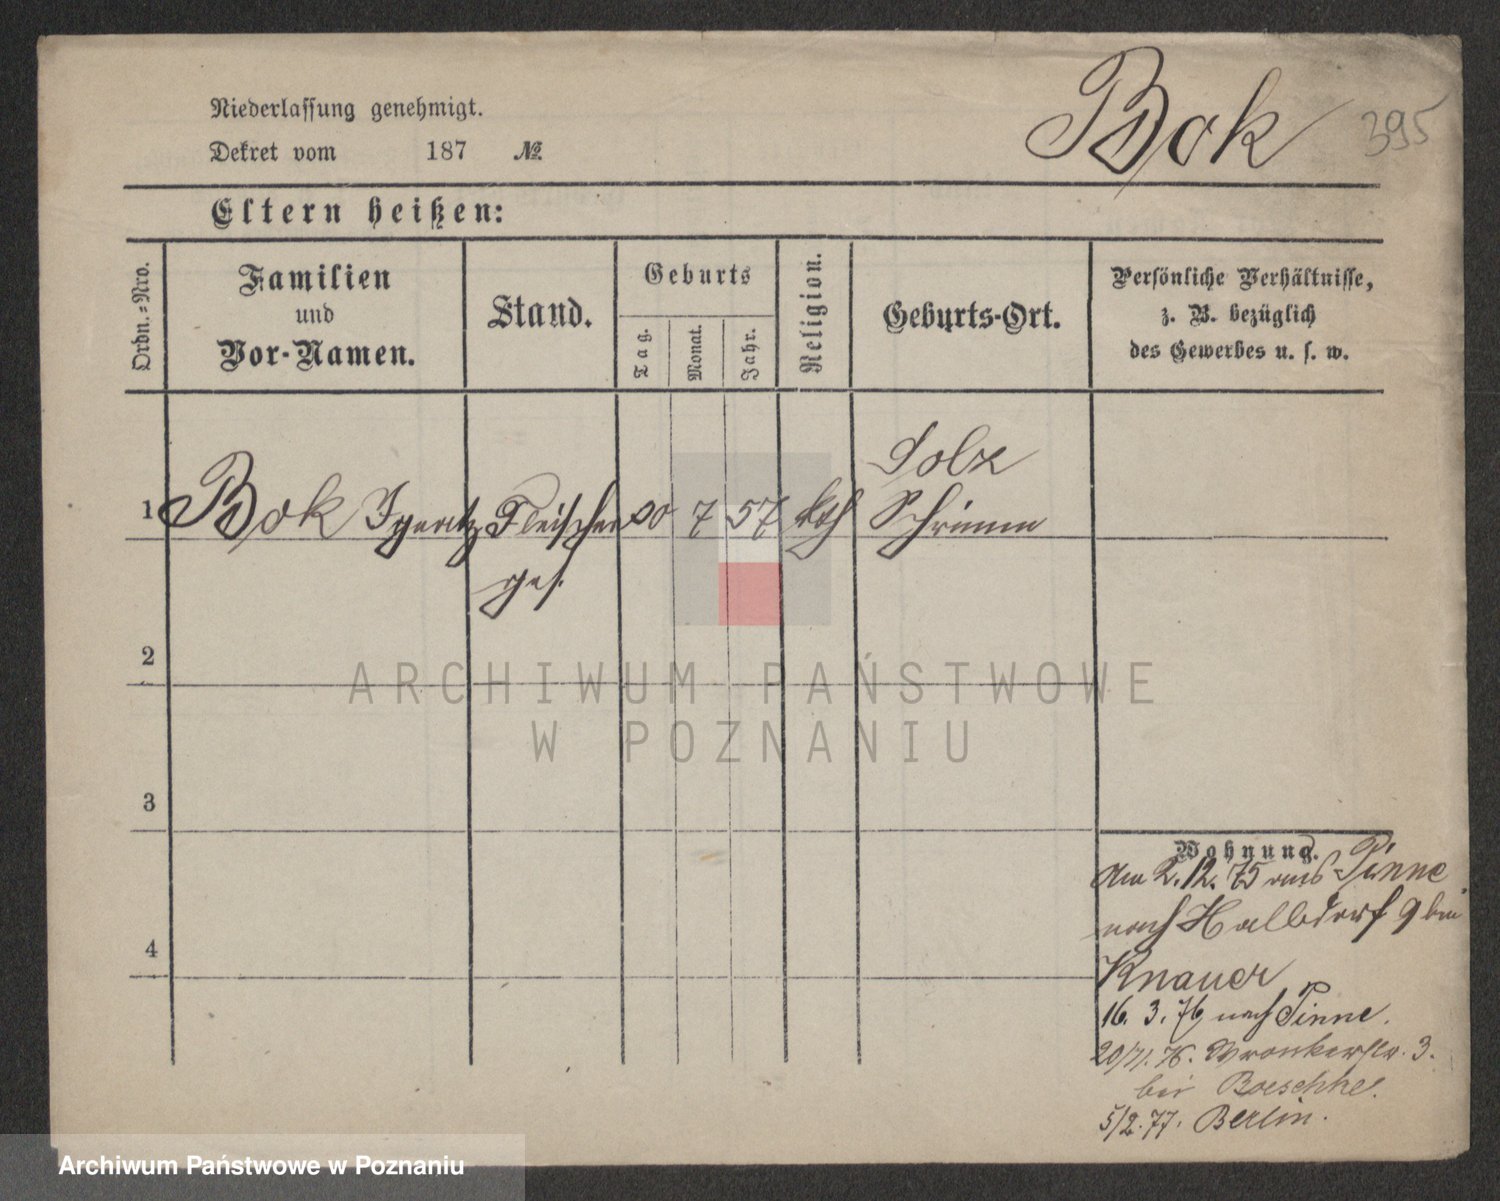 Niederlassung genehmigt.
Dekret vom 187 №
Bok
395
Eltern heißen:
Ordn.-Nro.
Familien
und
Vor-Namen.
Stand.
Geburts
Tag.
Monat.
Jahr.
Religion.
Geburts-Ort.
Persönliche Verhältnisse,
z. B. bezüglich
des Gewerbes u. s. w.
Solz
1 Bok Ignatz Fleischer 7 57 kth Schrimm
ges.
2
ARCHIWUM PAŃSTWOWE
W POZNANIU
3
Wohnung.
Am 2.12.75 aus Pinne
nach Halbdorf 9 bei
Knauer
16. 3. 76 nach Pinne.
20/11. 76. Wronkerstr. 3.
bei Boeschke.
5/2. 77. Berlin.
4
Archiwum Państwowe w Poznaniu